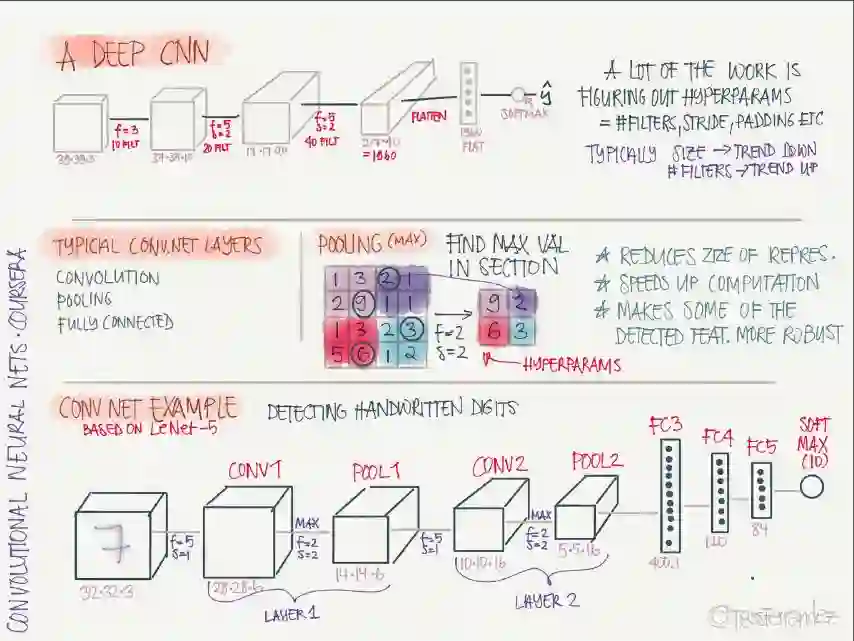 A DEEP CNN
39·39·3
f=3
10 FILT
37·37·10
f=5
s=2
20 FILT
17·17·20
f=5
s=2
40 FILT
=1960
FLATTEN
1960
FLAT
SOFTMAX
ŷ
A LOT OF THE WORK IS
FIGURING OUT HYPERPARAMS
= #FILTERS, STRIDE, PADDING ETC
TYPICALLY SIZE → TREND DOWN
#FILTERS → TREND UP
TYPICAL CONV.NET LAYERS
CONVOLUTION
POOLING
FULLY CONNECTED
POOLING (MAX)
FIND MAX VAL
IN SECTION
1 3 2 1
2 9 1 1
1 3 2 3
5 6 1 2
f=2
s=2
9 2
6 3
HYPERPARAMS
* REDUCES ZIZE OF REPRES.
* SPEEDS UP COMPUTATION
* MAKES SOME OF THE
DETECTED FEAT. MORE ROBUST
CONV NET EXAMPLE
BASED ON LeNet-5
DETECTING HANDWRITTEN DIGITS
7
32·32·3
f=5
s=1
CONV1
28·28·6
MAX
f=2
s=2
POOL1
14·14·6
LAYER 1
f=5
s=1
CONV2
10·10·16
MAX
f=2
s=2
POOL2
5·5·16
LAYER 2
FC3
FC4
120
FC5
84
SOFT
MAX
(10)
CONVOLUTIONAL NEURAL NETS · COURSERA
@TessFerrandez